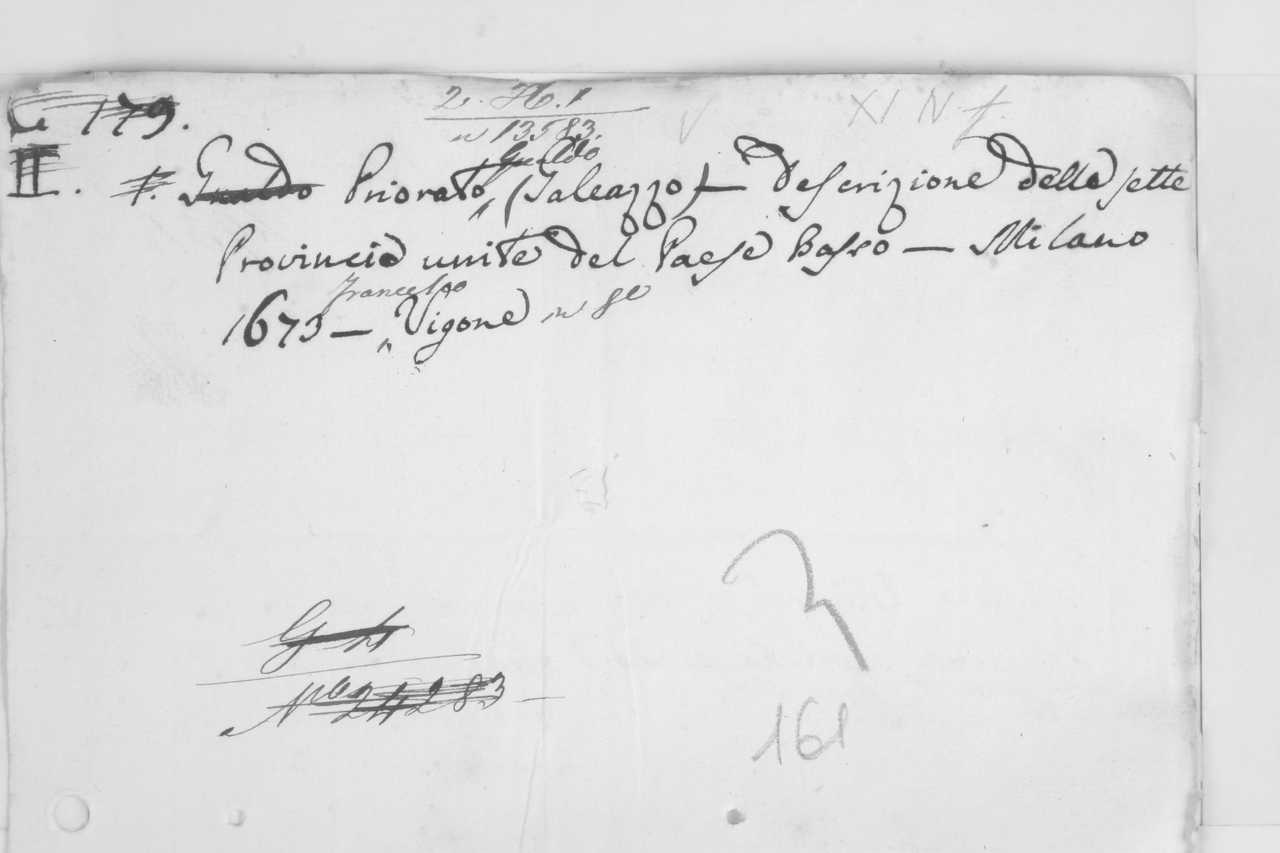 2. H. 1
XI N f.
179.
n 13583.
Gualdo
II. f. Gualdo Priorato, (Galeazzo) — Descrizione delle sette
Provincie unite del Paese Basso — Milano
Francesco
1673 — Vigone in 8o
G
No 24283
161